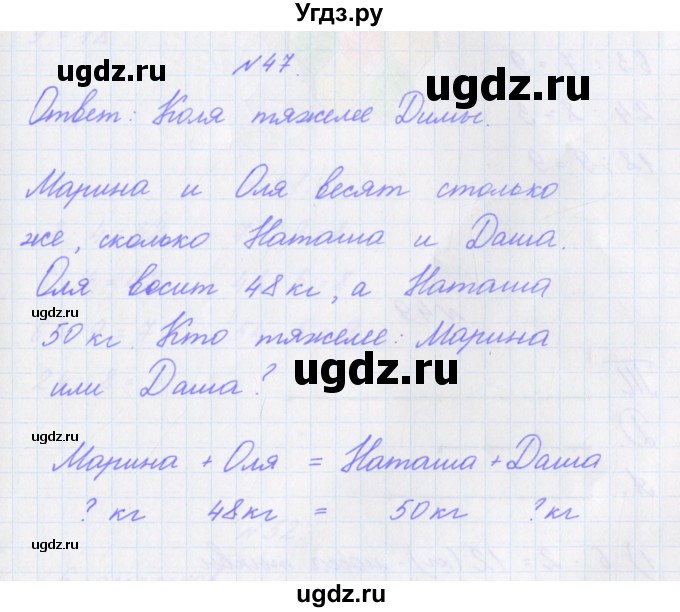 Угдз.ру
ugdz.ru
№47.
ugdz.ru
Ответ: Коля тяжелее Димы.
ugdz.ru
Марина и Оля весят столько
же, сколько Наташа и Даша.
Оля восит 48 кг, а Наташа
ugdz.ru
50 кг. Кто тяжелее: Марина
ugdz.ru
или Даша?
ugdz.ru
Марина + Оля = Наташа + Даша
? кг 48 кг = 50 кг ? кг
ugdz.ru
ugdz.ru
ugdz.ru